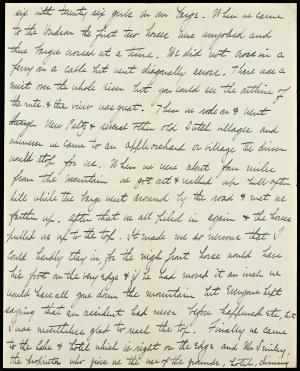 six with twenty six girls in our barge. When we came
to the Hudson the first two horses were unyoked and
three barges crossed at a time. We did not cross in a
ferry on a cable but went diagonally across. There was a
mist over the whole river but you could see the outline of
the vista & the view was great. Then we rode on & went
through New Paltz & several other old Dutch villages and
whenever we came to an apple orchard or village the driver
would stop for us. When we were about four miles
from the mountain we got out & walked up hill after
hill while the barge went around by the road & met us
farther up. After that we all piled in again & the horses
pulled us up to the top. It made me so nervous that I
could hardly stay in for the right front horse would have
his foot on the very edge & if he had moved it an inch we
would have all gone down the mountain but everyone kept
saying that an accident had never before happened etc, but
I was nevertheless glad to reach the top. Finally we came
to the lake & hotel which is right on the edge and Mr. Smiley,
the proprietor who gives us the use of the grounds, hotel, dining